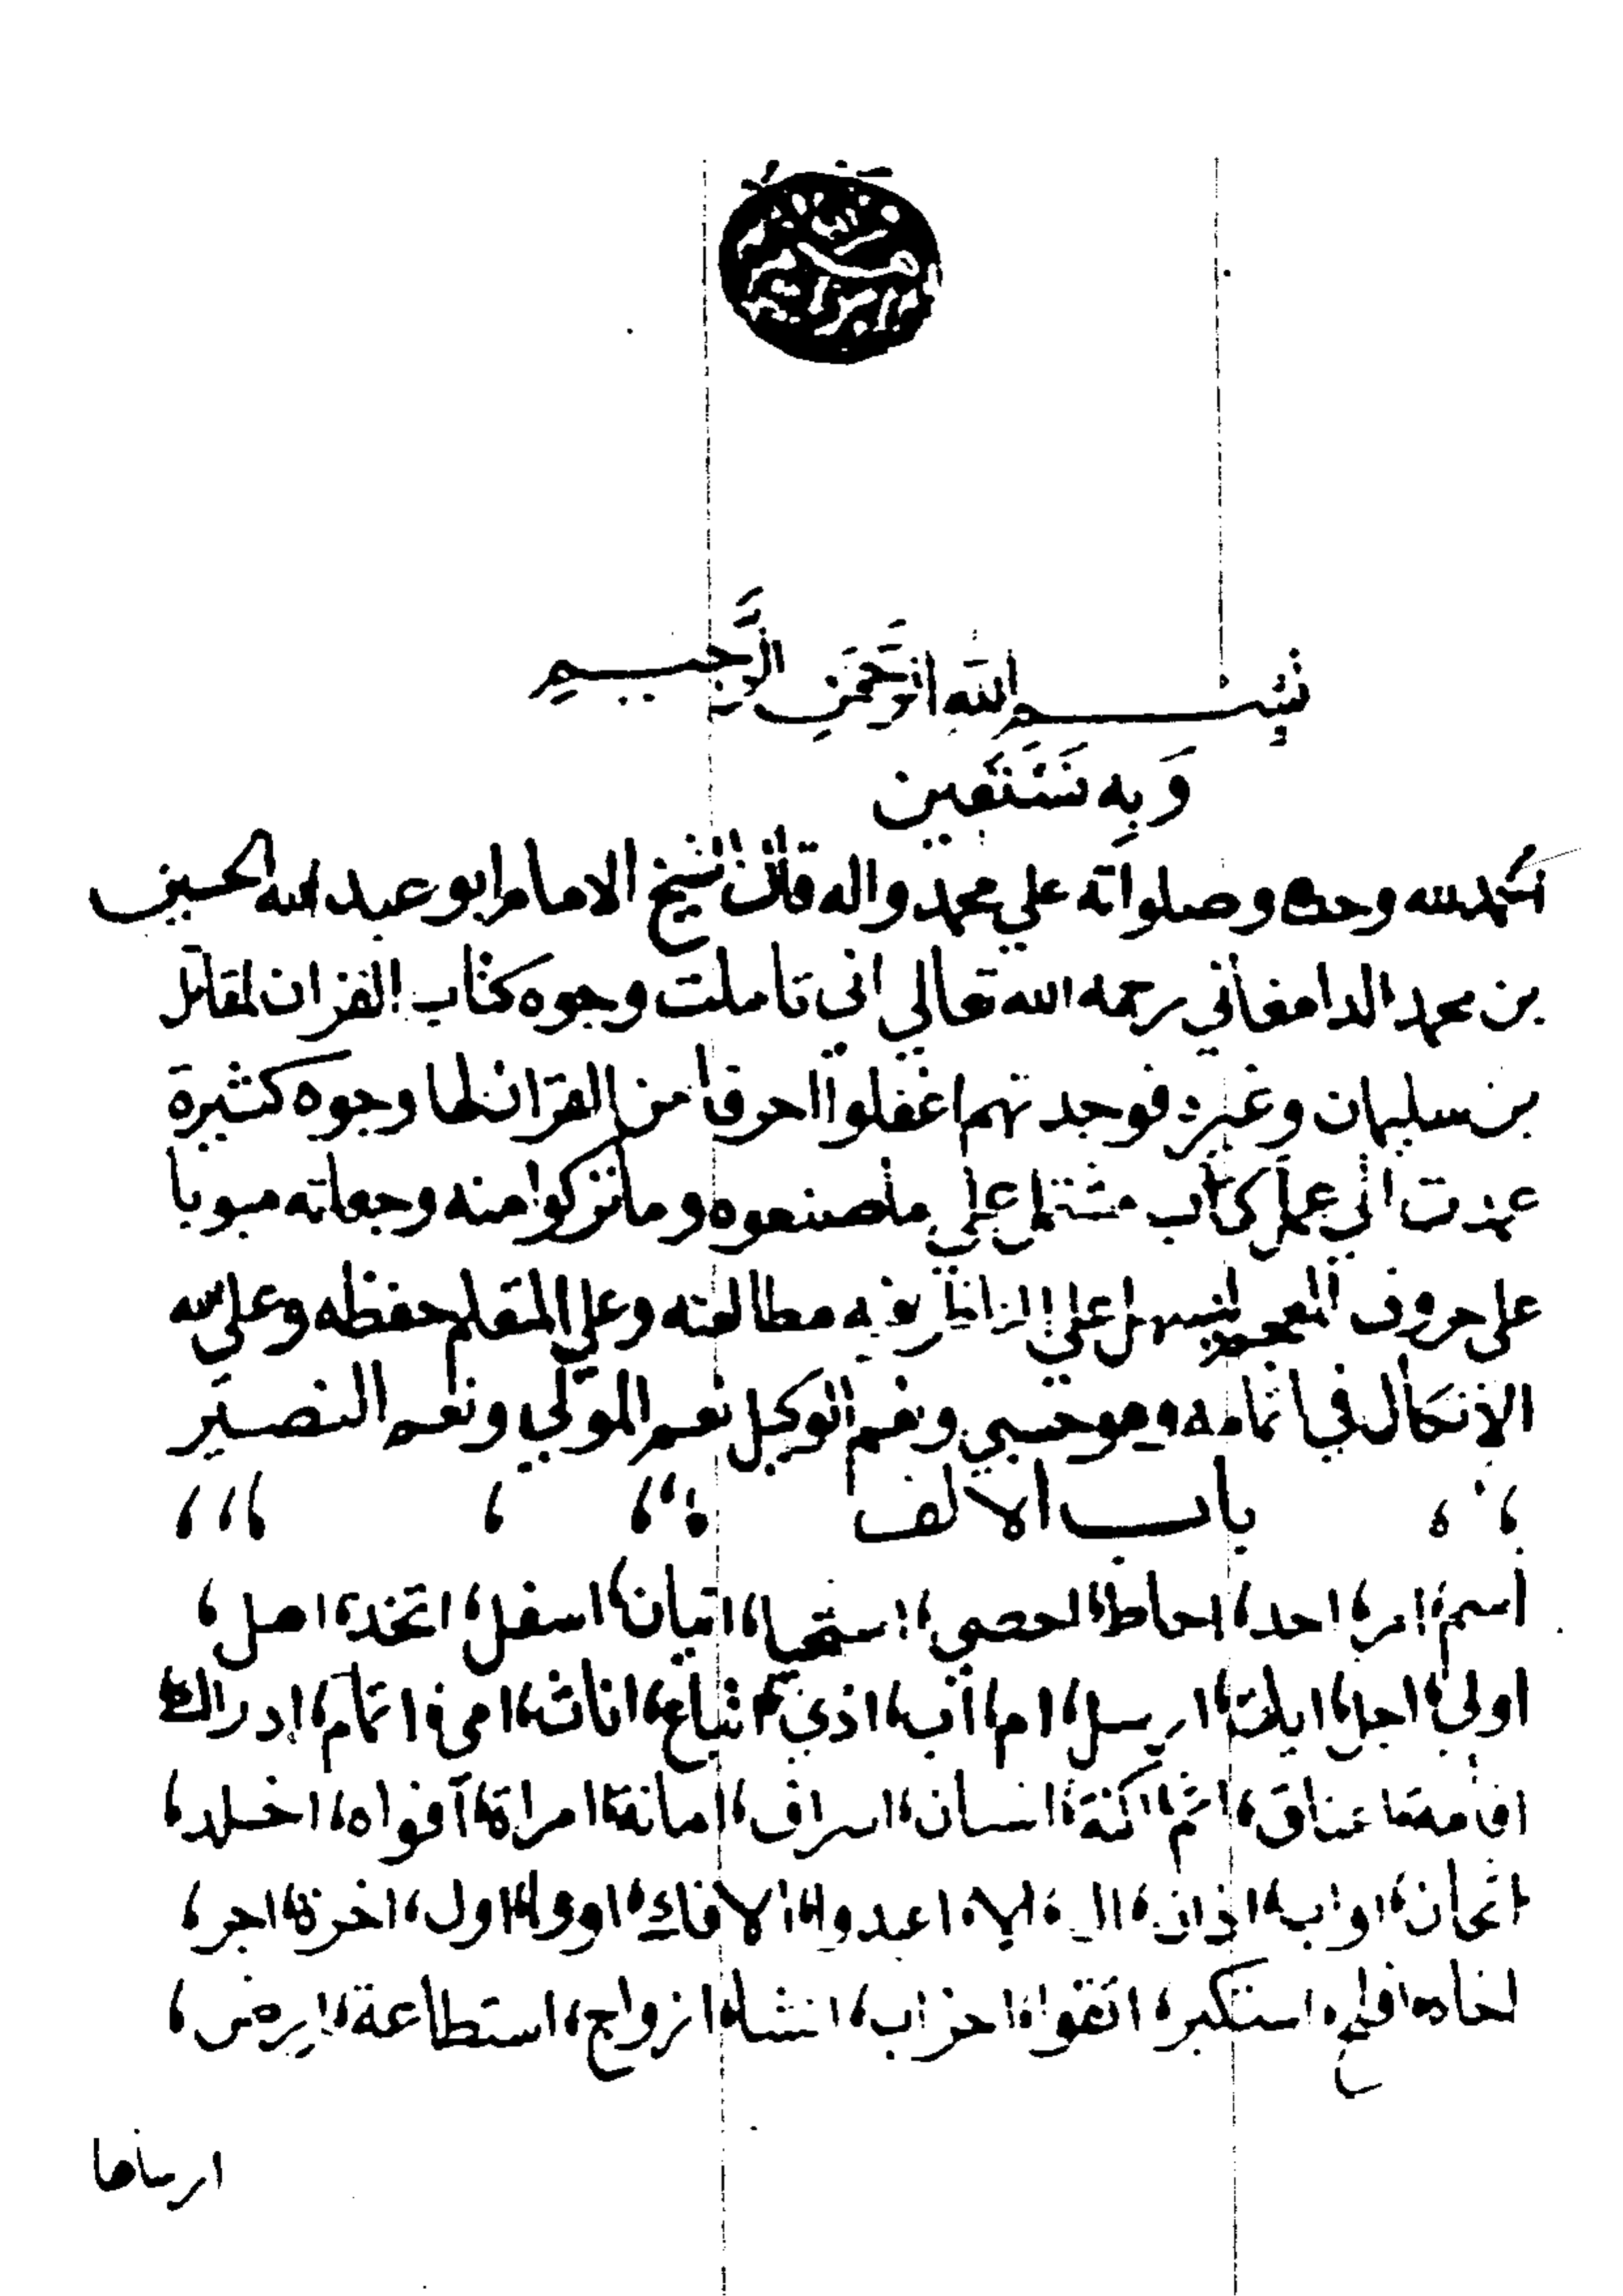 بِسْمِ اللهِ الرَّحْمَنِ الرَّحِيمِ
وَبِهِ نَسْتَعِين
الحمد لله وحده وصلواته علي محمد واله قال الشيخ الامام ابو عبد الله الحسين
بن محمد الدامغاني رحمه الله تعالي اني تاملت وجوه كتاب القران لمقاتل
بن سليمان وغيره فوجدتهم اغفلوا احرفا من القران لها وجوه كثيرة
عمدت الي عمل كتاب مشتمل علي ما صنعوه وما تركوا منه وجعلته مبوبا
علي حروف المعجم ليسهل علي الناظر فيه مطالعته وعلي المتعلم حفظه وعلي الله
الاتكال في اتمامه وهو حسبي ونعم الوكيل نعم المولي ونعم النصير
باب الالف
اسم، امر، احد، احاط، احصي، استحيا، اتيان، اسفل، اتخذ، اهل،
اولي، اجل، ارسل، ام، اب، اذي، اتباع، اناث، امي، اتمام، ادراك،
اقامة، اعناق، اثم، اكنة، انسان، اسراف، امانة، امراة، آفواه، اخلد،
اواب، اذان، ال، الا، اعدوا، الافك، اووا، اول، اخرة، اجر،
اخاه، افلح، استكبر، اتقوا، احزاب، انشا، ازواج، استطاعة، ارض،
ارساها